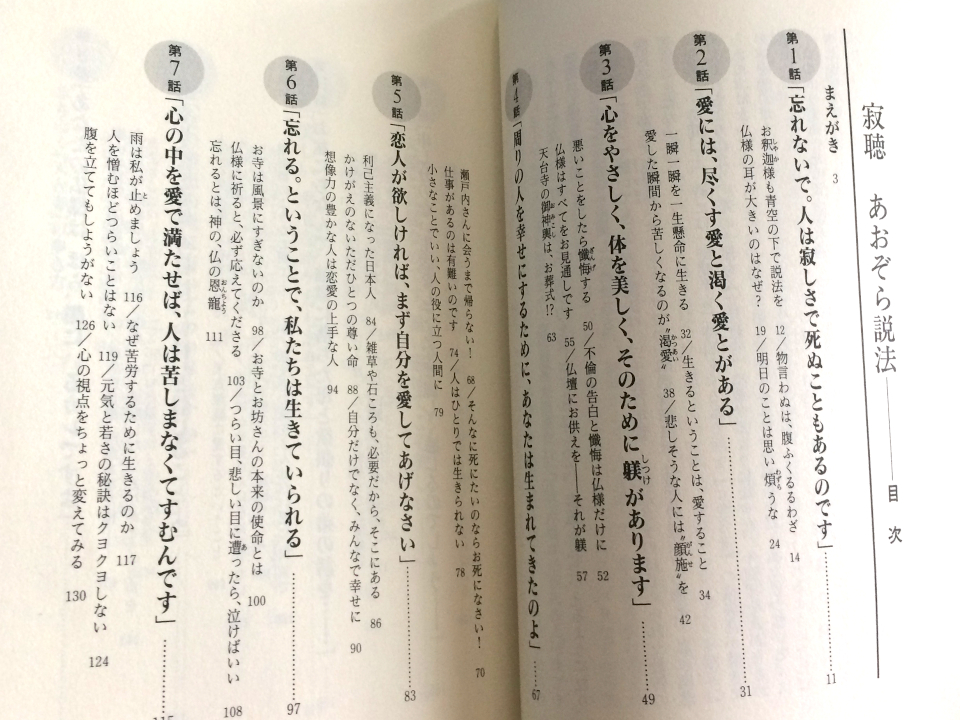 寂聴 あおぞら説法――目次
まえがき 3
第1話「忘れないで。人は寂しさで死ぬこともあるのです」……11
お釈迦様も青空の下で説法を 12/物言わぬは、腹ふくるるわざ 14
仏様の耳が大きいのはなぜ? 19/明日のことは思い煩うな 24
第2話「愛には、尽くす愛と渇く愛とがある」……31
一瞬一瞬を一生懸命に生きる 32/生きるということは、愛すること 34
愛した瞬間から苦しくなるのが“渇愛” 38/悲しそうな人には“顔施”を 42
第3話「心をやさしく、体を美しく、そのために躾があります」……49
悪いことをしたら懺悔する 50/不倫の告白と懺悔は仏様だけに 52
仏様はすべてをお見通しです 55/仏壇にお供えを――それが躾 57
天台寺の御神輿は、お葬式!? 63
第4話「周りの人を幸せにするために、あなたは生まれてきたのよ」……67
瀬戸内さんに会うまで帰らない! 68/そんなに死にたいのならお死になさい! 70
仕事があるのは有難いのです 74/人はひとりでは生きられない 78
小さなことでいい、人の役に立つ人間に 79
第5話「恋人が欲しければ、まず自分を愛してあげなさい」……83
利己主義になった日本人 84/雑草や石ころも、必要だから、そこにある 86
かけがえのないただひとつの尊い命 88/自分だけでなく、みんなで幸せに 90
想像力の豊かな人は恋愛の上手な人 94
第6話「忘れる。ということで、私たちは生きていられる」……97
お寺は風景にすぎないのか 98/お寺とお坊さんの本来の使命とは 100
仏様に祈ると、必ず応えてくださる 103/つらい目、悲しい目に遭ったら、泣けばいい 108
忘れるとは、神の、仏の恩寵 111
第7話「心の中を愛で満たせば、人は苦しまなくてすむんです」……115
雨は私が止めましょう 116/なぜ苦労するために生きるのか 117
人を憎むほどつらいことはない 119/元気と若さの秘訣はクヨクヨしない 124
腹を立ててもしようがない 126/心の視点をちょっと変えてみる 130